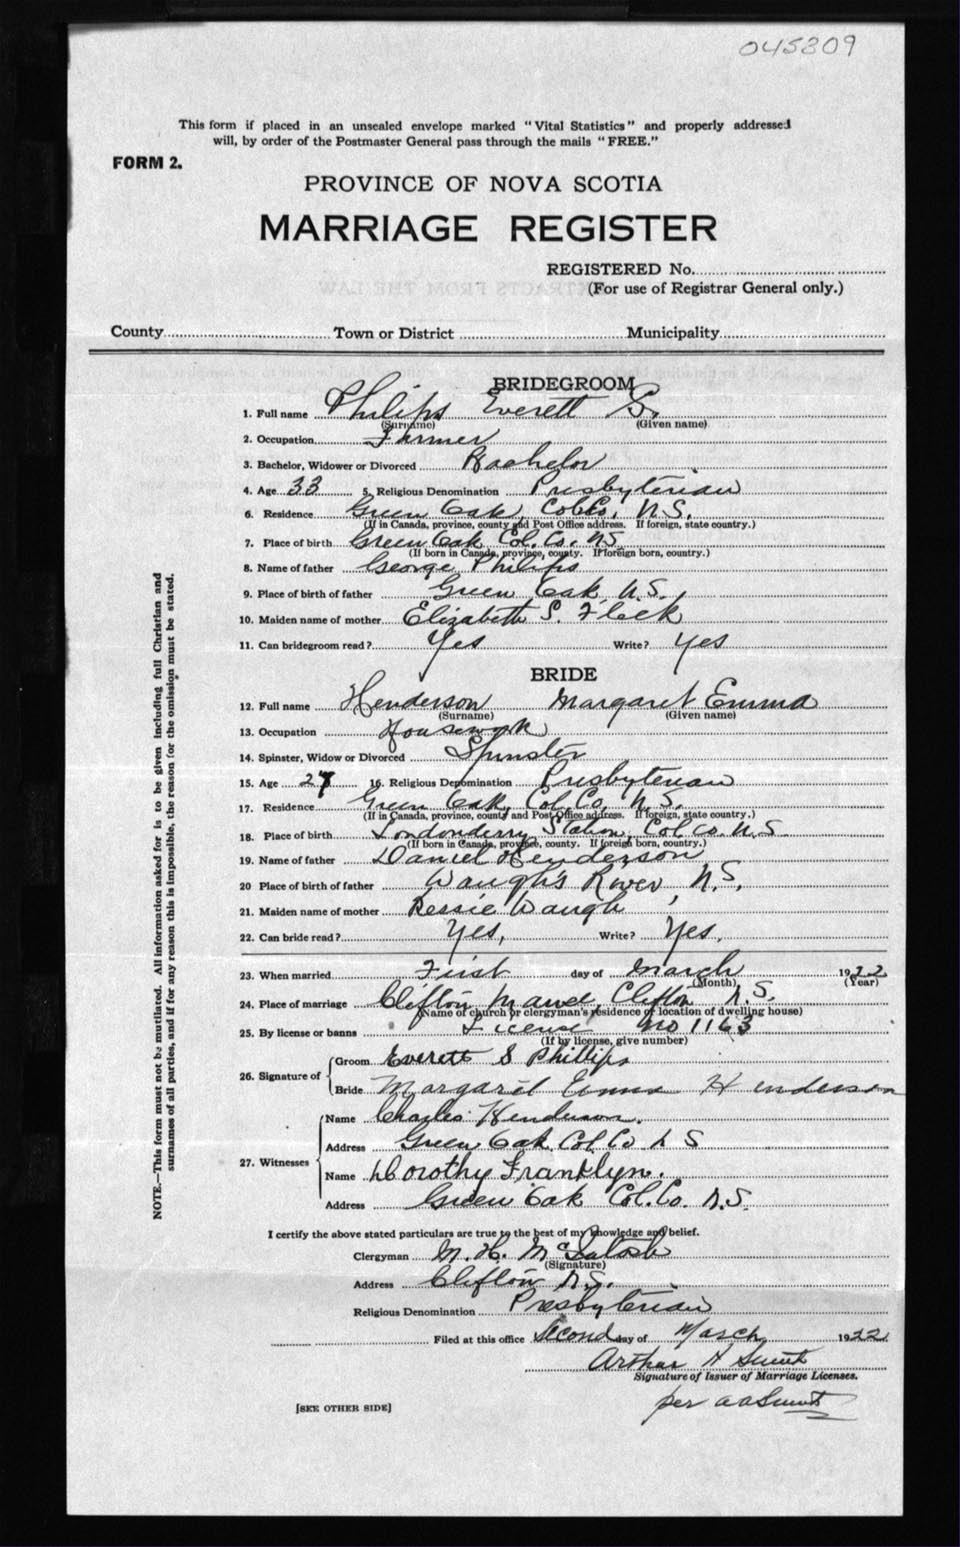 045809
This form if placed in an unsealed envelope marked "Vital Statistics" and properly addressed
will, by order of the Postmaster General pass through the mails "FREE."
FORM 2.
PROVINCE OF NOVA SCOTIA
MARRIAGE REGISTER
REGISTERED No.
(For use of Registrar General only.)
County Town or District Municipality
BRIDEGROOM
1. Full name Philips Everett S.
(Surname) (Given name)
2. Occupation Farmer
3. Bachelor, Widower or Divorced Bachelor
4. Age 33 5. Religious Denomination Presbyterian
6. Residence Green Oak, Col Co, N.S.
(If in Canada, province, county and Post Office address. If foreign, state country.)
7. Place of birth Green Oak Col. Co. N.S.
(If born in Canada, province, county. If foreign born, country.)
8. Name of father George Philips
9. Place of birth of father Green Oak N.S.
10. Maiden name of mother Elizabeth S. Fleck
11. Can bridegroom read? Yes Write? Yes
BRIDE
12. Full name Henderson Margaret Emma
(Surname) (Given name)
13. Occupation Housework
14. Spinster, Widow or Divorced Spinster
15. Age 27 16. Religious Denomination Presbyterian
17. Residence Green Oak, Col. Co, N.S.
(If in Canada, province, county and Post Office address. If foreign, state country.)
18. Place of birth Londonderry Station, Col Co. N.S
(If born in Canada, province, county. If foreign born, country.)
19. Name of father Daniel Henderson
20 Place of birth of father Waugh's River, N.S.
21. Maiden name of mother Bessie Waugh
22. Can bride read? Yes, Write? Yes,
23. When married First day of March 1922
(Month) (Year)
24. Place of marriage Clifton Manse, Clifton N.S.
(Name of church or clergyman's residence or location of dwelling house)
25. By license or banns License No 1163
(If by license, give number)
26. Signature of
Groom Everett S Phillips
Bride Margaret Emma Henderson
27. Witnesses
Name Charles Henderson.
Address Green Oak Col. Co N S
Name Dorothy Franklyn.
Address Green Oak Col. Co. N.S.
I certify the above stated particulars are true to the best of my knowledge and belief.
Clergyman M. H. McIntosh
(Signature)
Address Clifton N.S.
Religious Denomination Presbyterian
Filed at this office Second day of March 1922
Arthur H Smith
Signature of Issuer of Marriage Licenses.
per A A Smith
[SEE OTHER SIDE]
NOTE.—This form must not be mutilated. All information asked for is to be given including full Christian and
surnames of all parties, and if for any reason this is impossible, the reason for the omission must be stated.